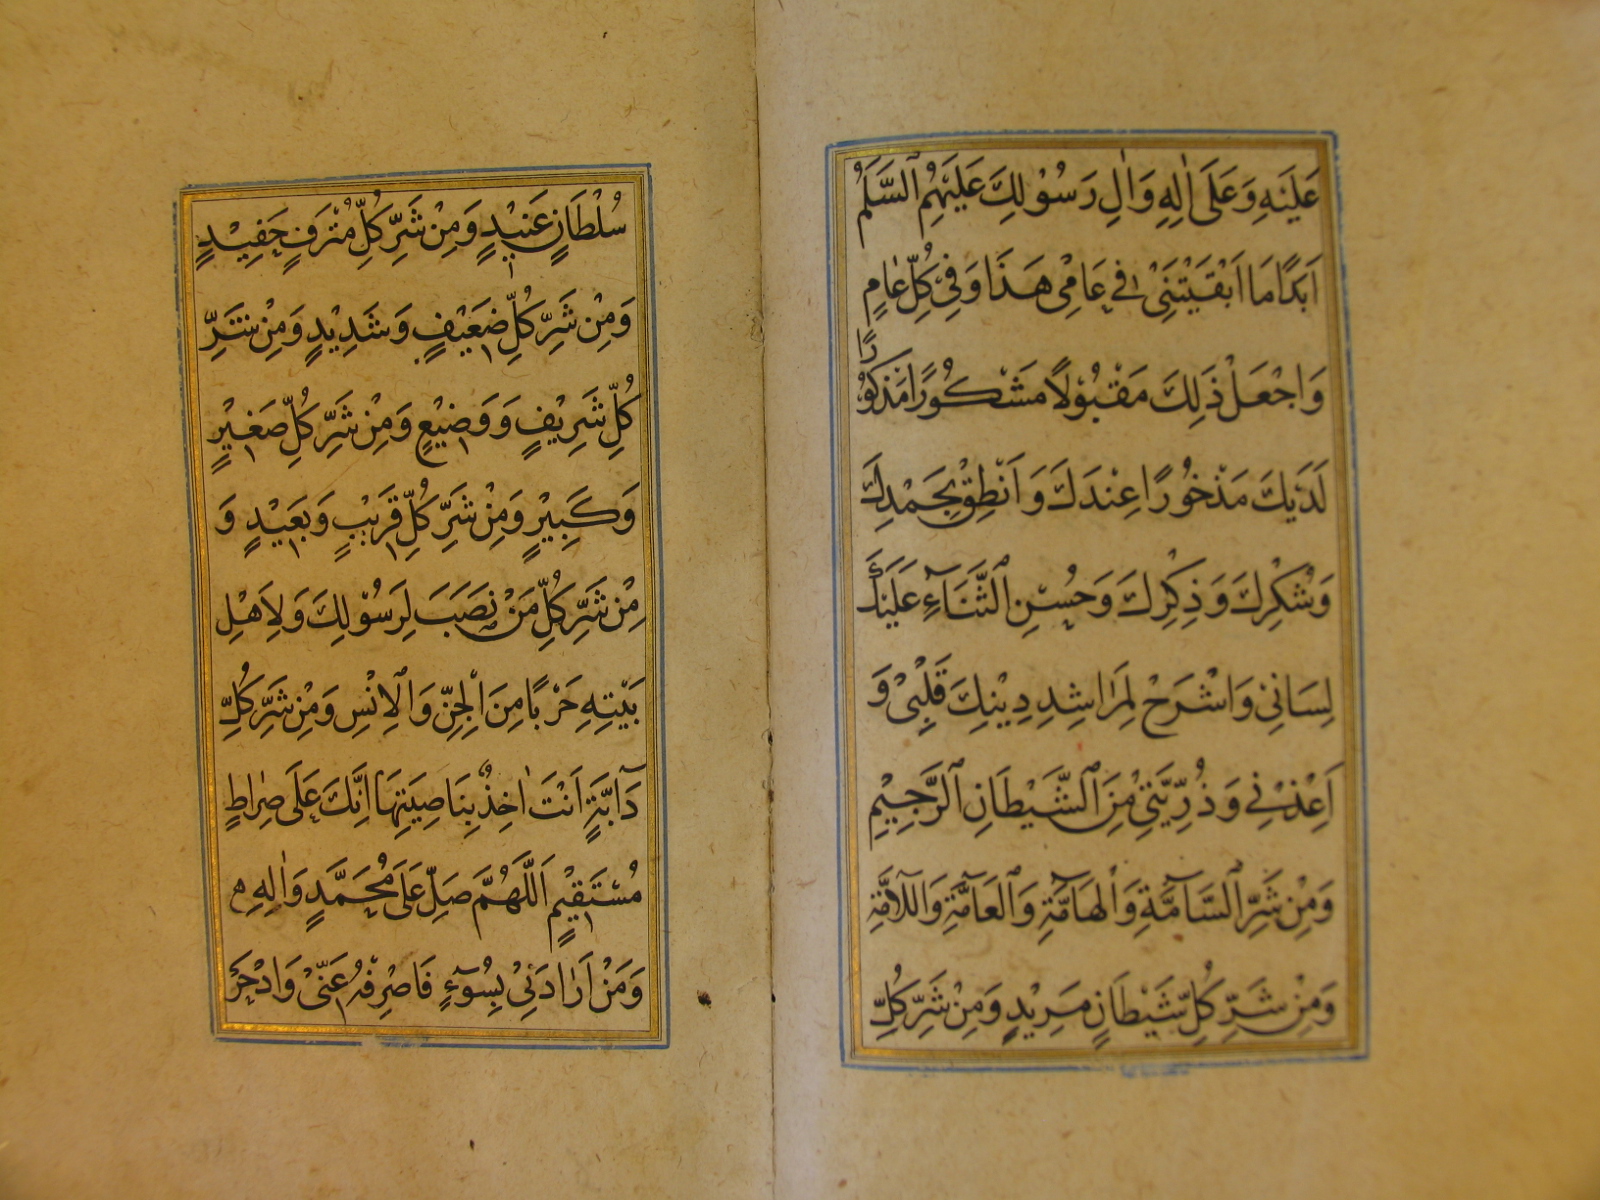 عَلَيْهِ وَعَلَى اٰلِهِ وَاٰلِ رَسُوْلِكَ عَلَيْهِمُ ٱلسَّلَمُ
اَبَدًا مَا اَبْقَيْتَنِىْ فِى عَامِىْ هَذَا وَفِىْ كُلِّ عَامٍ
وَاجْعَلْ ذَلِكَ مَقْبُوْلًا مَشْكُوْرًا مَذْكُوْرًا
لَدَيْكَ مَذْخُوْرًا عِنْدَكَ وَاَنْطِقْ بِحَمْدِكَ
وَشُكْرِكَ وَذِكْرِكَ وَحُسْنِ ٱلثَّنَآءِ عَلَيْكَ
لِسَانِىْ وَاشْرَحْ لِمَرَاشِدِ دِيْنِكَ قَلْبِىْ وَ
اَعِذْنِى وَذُرِّيَّتِىْ مِنَ ٱلشَّيْطَانِ ٱلرَّجِيْمِ
وَمِنْ شَرِّ ٱلسَّآمَّةِ وَٱلْهَآمَّةِ وَٱلْعَآمَّةِ وَٱللَّآمَّةِ
وَمِنْ شَرِّ كُلِّ شَيْطَانٍ مَرِيْدٍ وَمِنْ شَرِّ كُلِّ
سُلْطَانٍ عَنِيْدٍ وَمِنْ شَرِّ كُلِّ مُتْرَفٍ حَفِيْدٍ
وَمِنْ شَرِّ كُلِّ ضَعِيْفٍ وَشَدِيْدٍ وَمِنْ شَرِّ
كُلِّ شَرِيْفٍ وَوَضِيْعٍ وَمِنْ شَرِّ كُلِّ صَغِيْرٍ
وَكَبِيْرٍ وَمِنْ شَرِّ كُلِّ قَرِيْبٍ وَبَعِيْدٍ وَ
مِنْ شَرِّ كُلِّ مَنْ نَصَبَ لِرَسُوْلِكَ وَلِاَهْلِ
بَيْتِهِ حَرْبًا مِنَ الْجِنِّ وَالْاِنْسِ وَمِنْ شَرِّ كُلِّ
دَآبَّةٍ اَنْتَ اٰخِذٌ بِنَاصِيَتِهَا اِنَّكَ عَلَى صِرَاطٍ
مُسْتَقِيْمٍ اَللَّهُمَّ صَلِّ عَلَى مُحَمَّدٍ وَاٰلِهِ
وَمَنْ اَرَادَنِىْ بِسُوْٓءٍ فَاصْرِفْهُ عَنِّىْ وَادْحَرْ